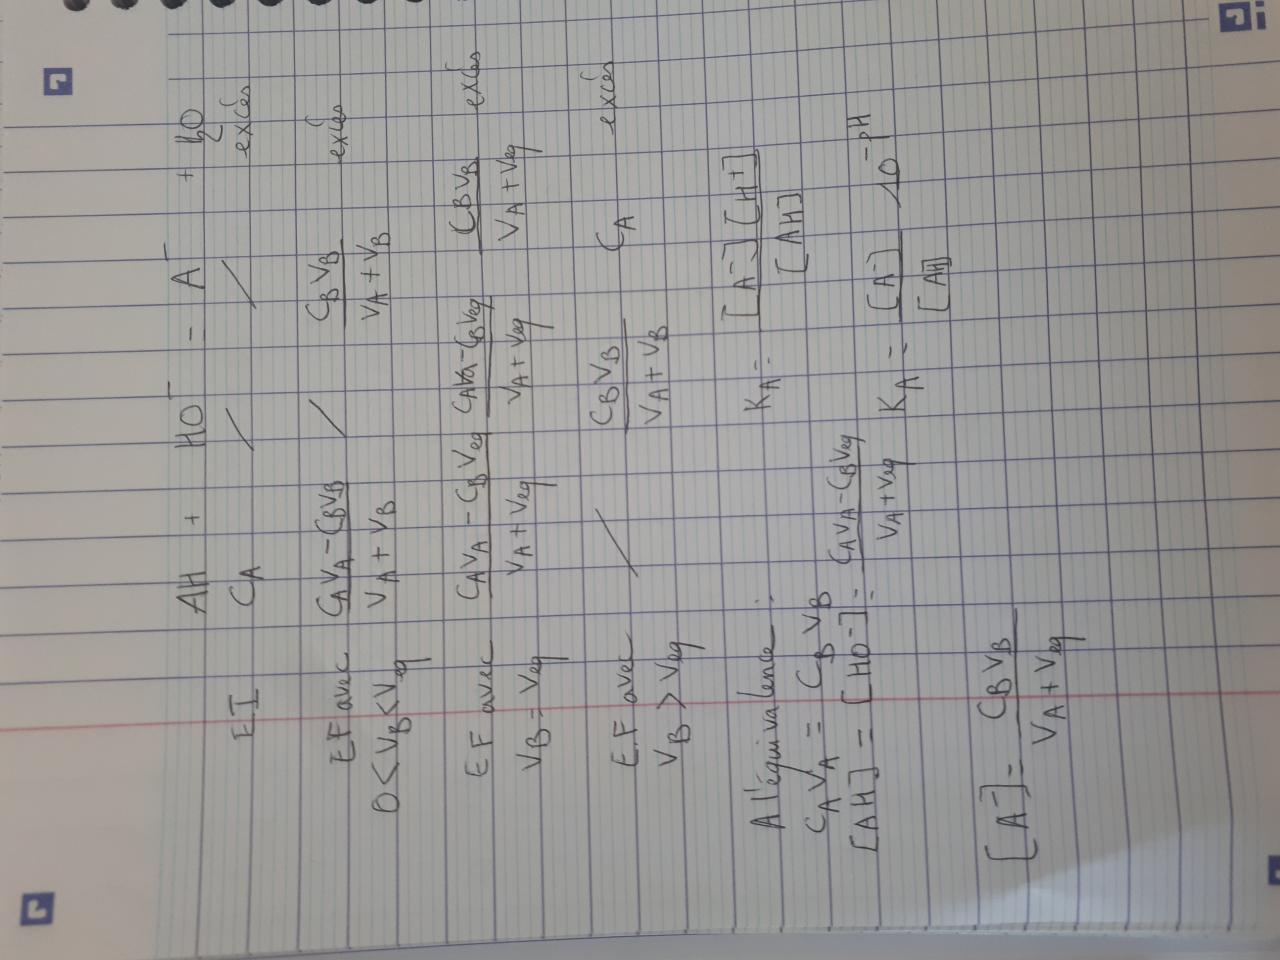 AH + HO⁻ - A⁻ + H₂O
EI CA / / excès
EF avec 0<VB<Veq (CAVA - CBVB)/(VA + VB) / (CBVB)/(VA + VB) excès
EF avec VB = Veq (CAVA - CBVeq)/(VA + Veq) (CAVA - CBVeq)/(VA + Veq) (CBVB)/(VA + Veq) excès
EF avec VB > Veq / (CBVB)/(VA + VB) CA excès
A l'équivalence : KA = [A⁻][H⁺]/[AH]
CAVA = CBVB
[AH] = [HO⁻] = (CAVA - CBVeq)/(VA + Veq) KA = [A⁻]/[AH] 10^-pH
[A⁻] = (CBVB)/(VA + Veq)